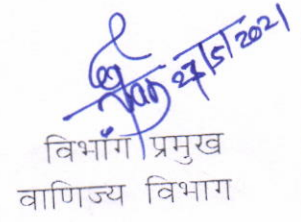 27/5/2021
विभाग प्रमुख
वाणिज्य विभाग